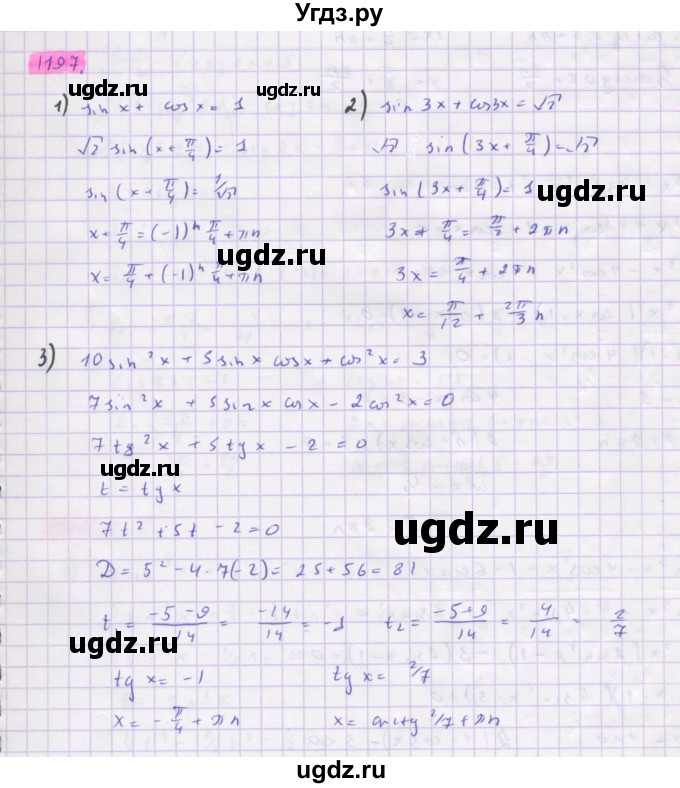 Угдз.ру
1197.
1) sin x + cos x = 1
√2 sin (x + π/4) = 1
sin (x + π/4) = 1/√2
x + π/4 = (-1)ⁿ π/4 + πn
x = π/4 + (-1)ⁿ π/4 + πn
2) sin 3x + cos3x = √2
√2 sin (3x + π/4) = √2
sin (3x + π/4) = 1
3x + π/4 = π/2 + 2πn
3x = π/4 + 2πn
x = π/12 + 2π/3 n
3) 10 sin²x + 5 sin x cos x + cos²x = 3
7 sin²x + 5 sin x cos x - 2 cos²x = 0
7 tg²x + 5 tg x - 2 = 0
t = tg x
7t² + 5t - 2 = 0
D = 5² - 4 · 7(-2) = 25 + 56 = 81
t₁ = -5-9/14 = -14/14 = -1 t₂ = -5+9/14 = 4/14 = 2/7
tg x = -1 tg x = 2/7
x = - π/4 + πn x = arctg 2/7 + πn
ugdz.ru
ugdz.ru
ugdz.ru
ugdz.ru
ugdz.ru
ugdz.ru
ugdz.ru
ugdz.ru
ugdz.ru
ugdz.ru